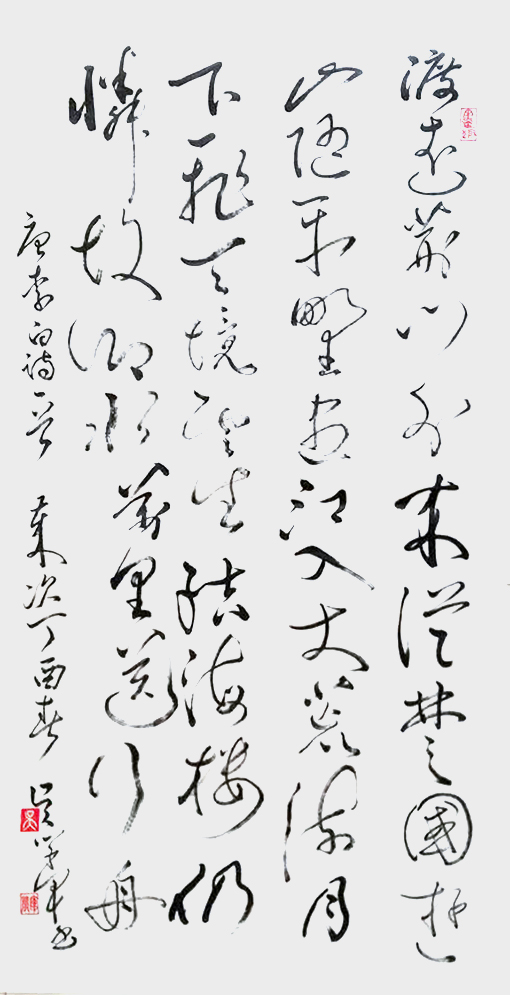 渡遠荊門外來從楚國遊
山隨平野盡江入大荒流月
下飛天境雲生結海樓仍
憐故鄉水萬里送行舟
唐李白詩一首 歲次丁酉春 吴学军书